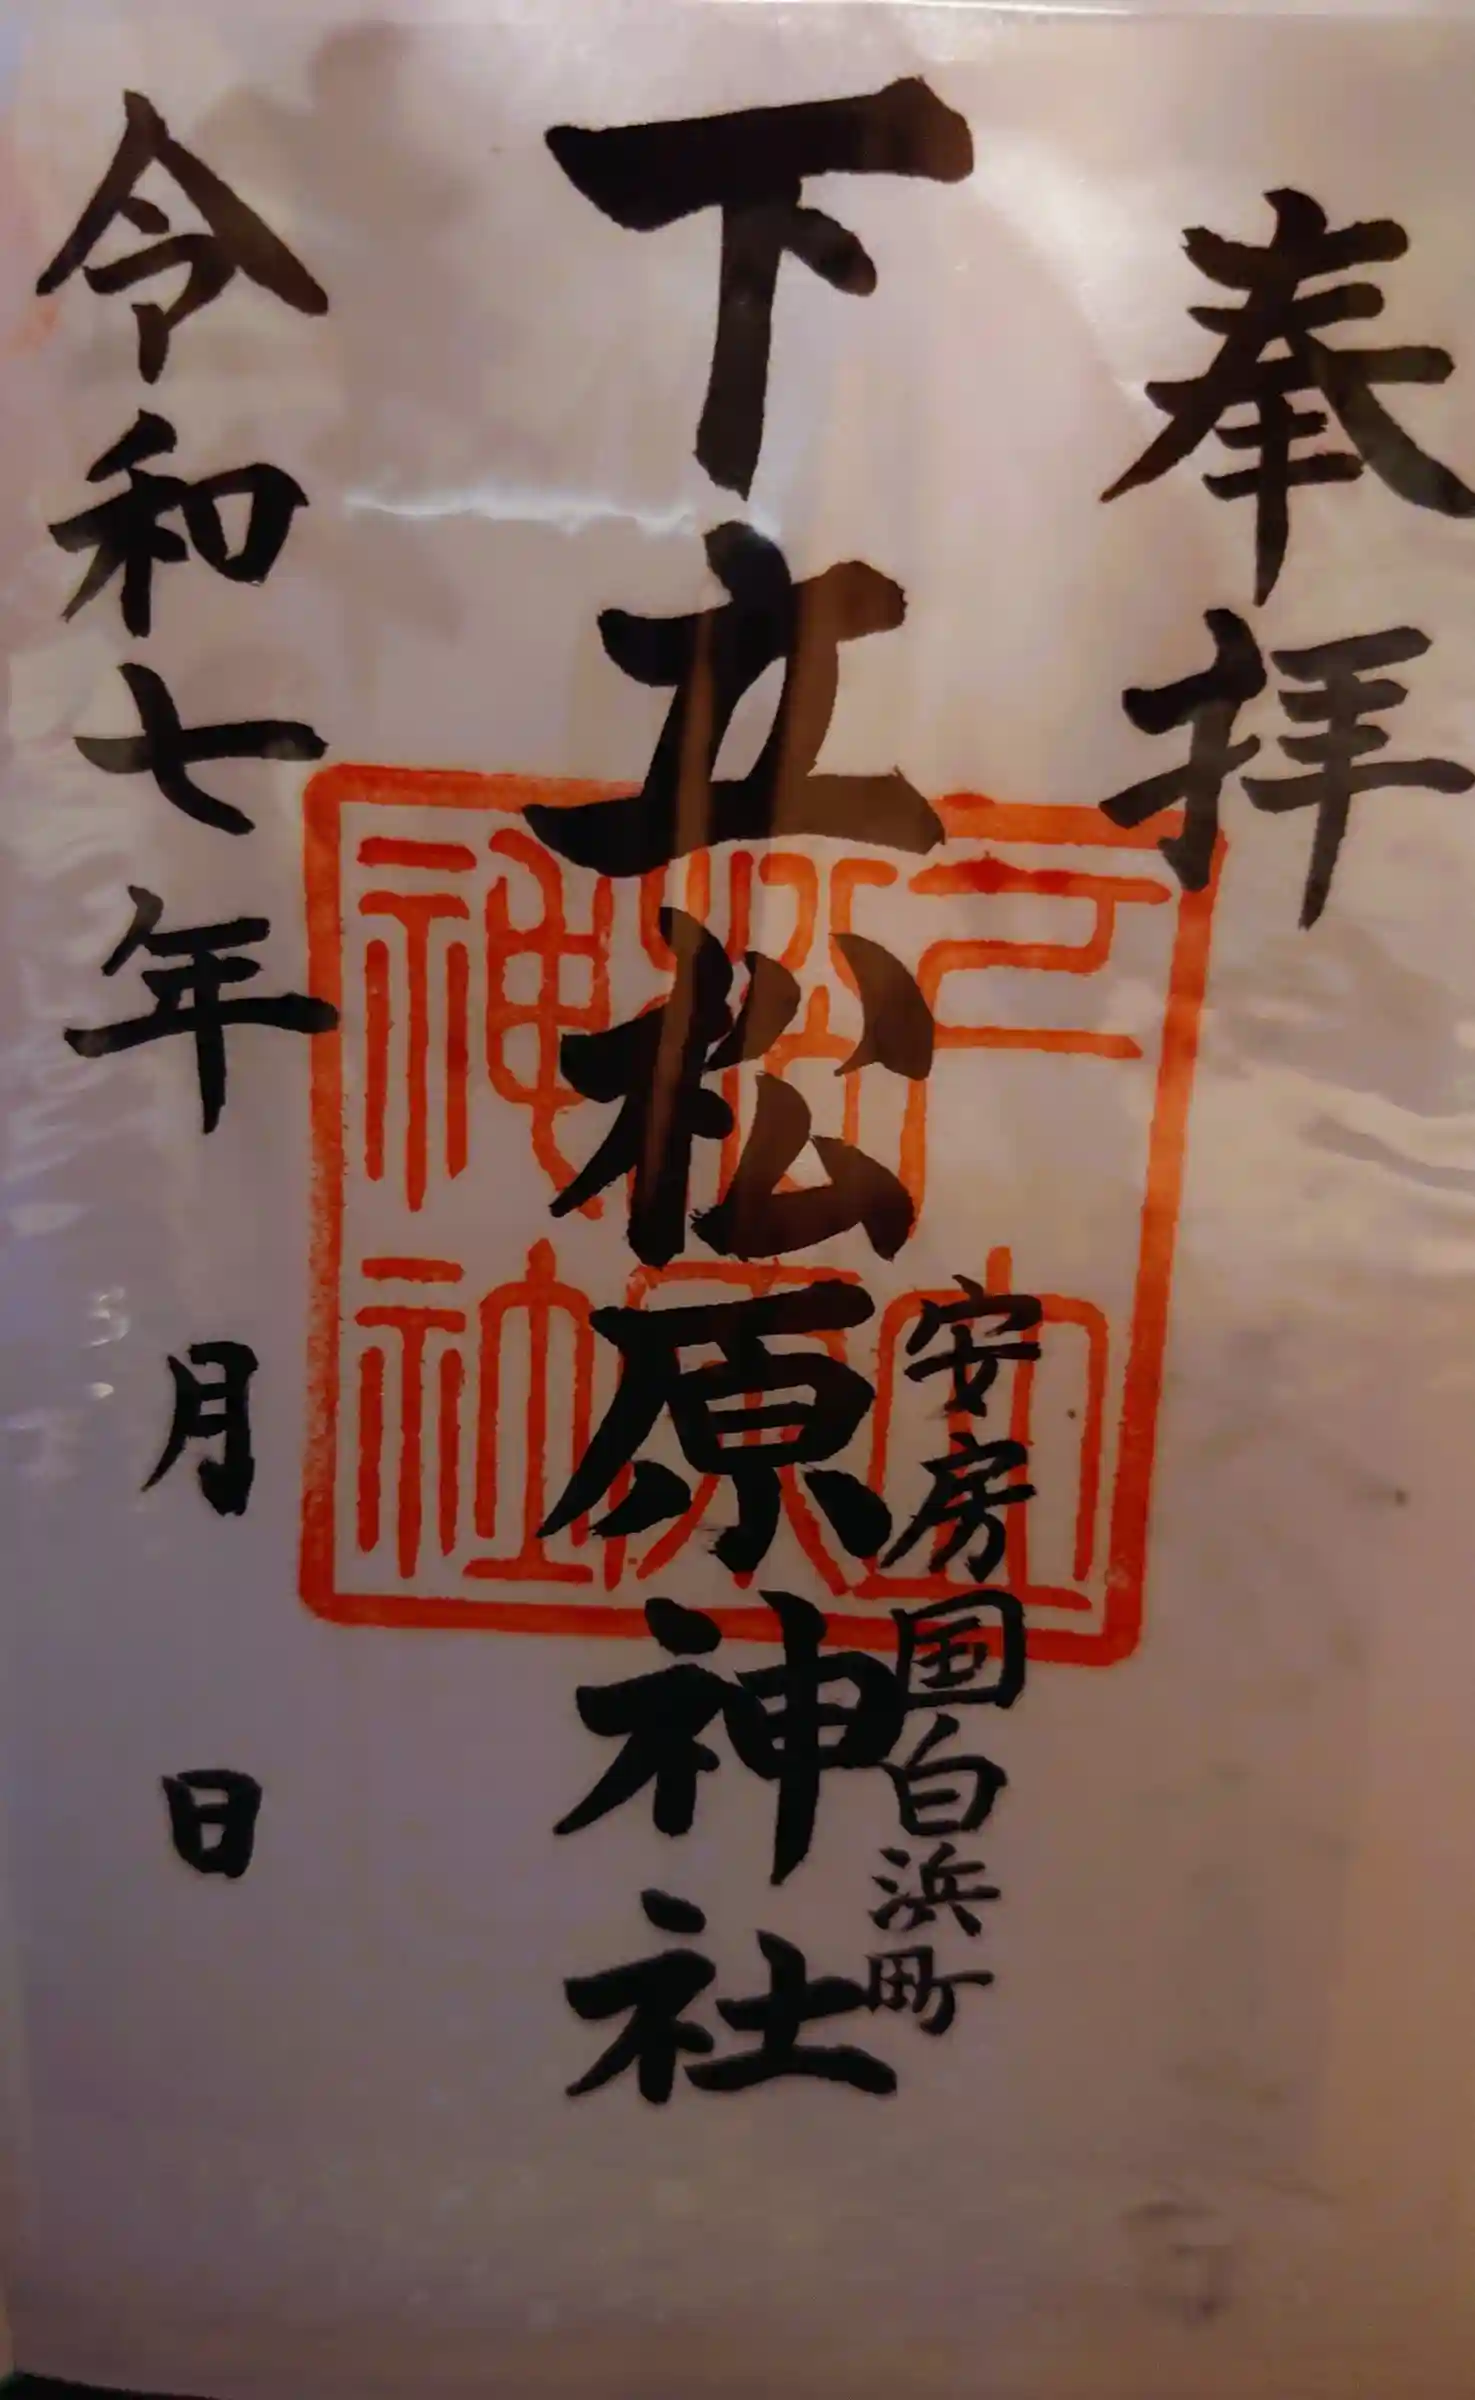 奉拝
安房国白浜町
下立松原神社
令和七年 月 日
下立松原神社